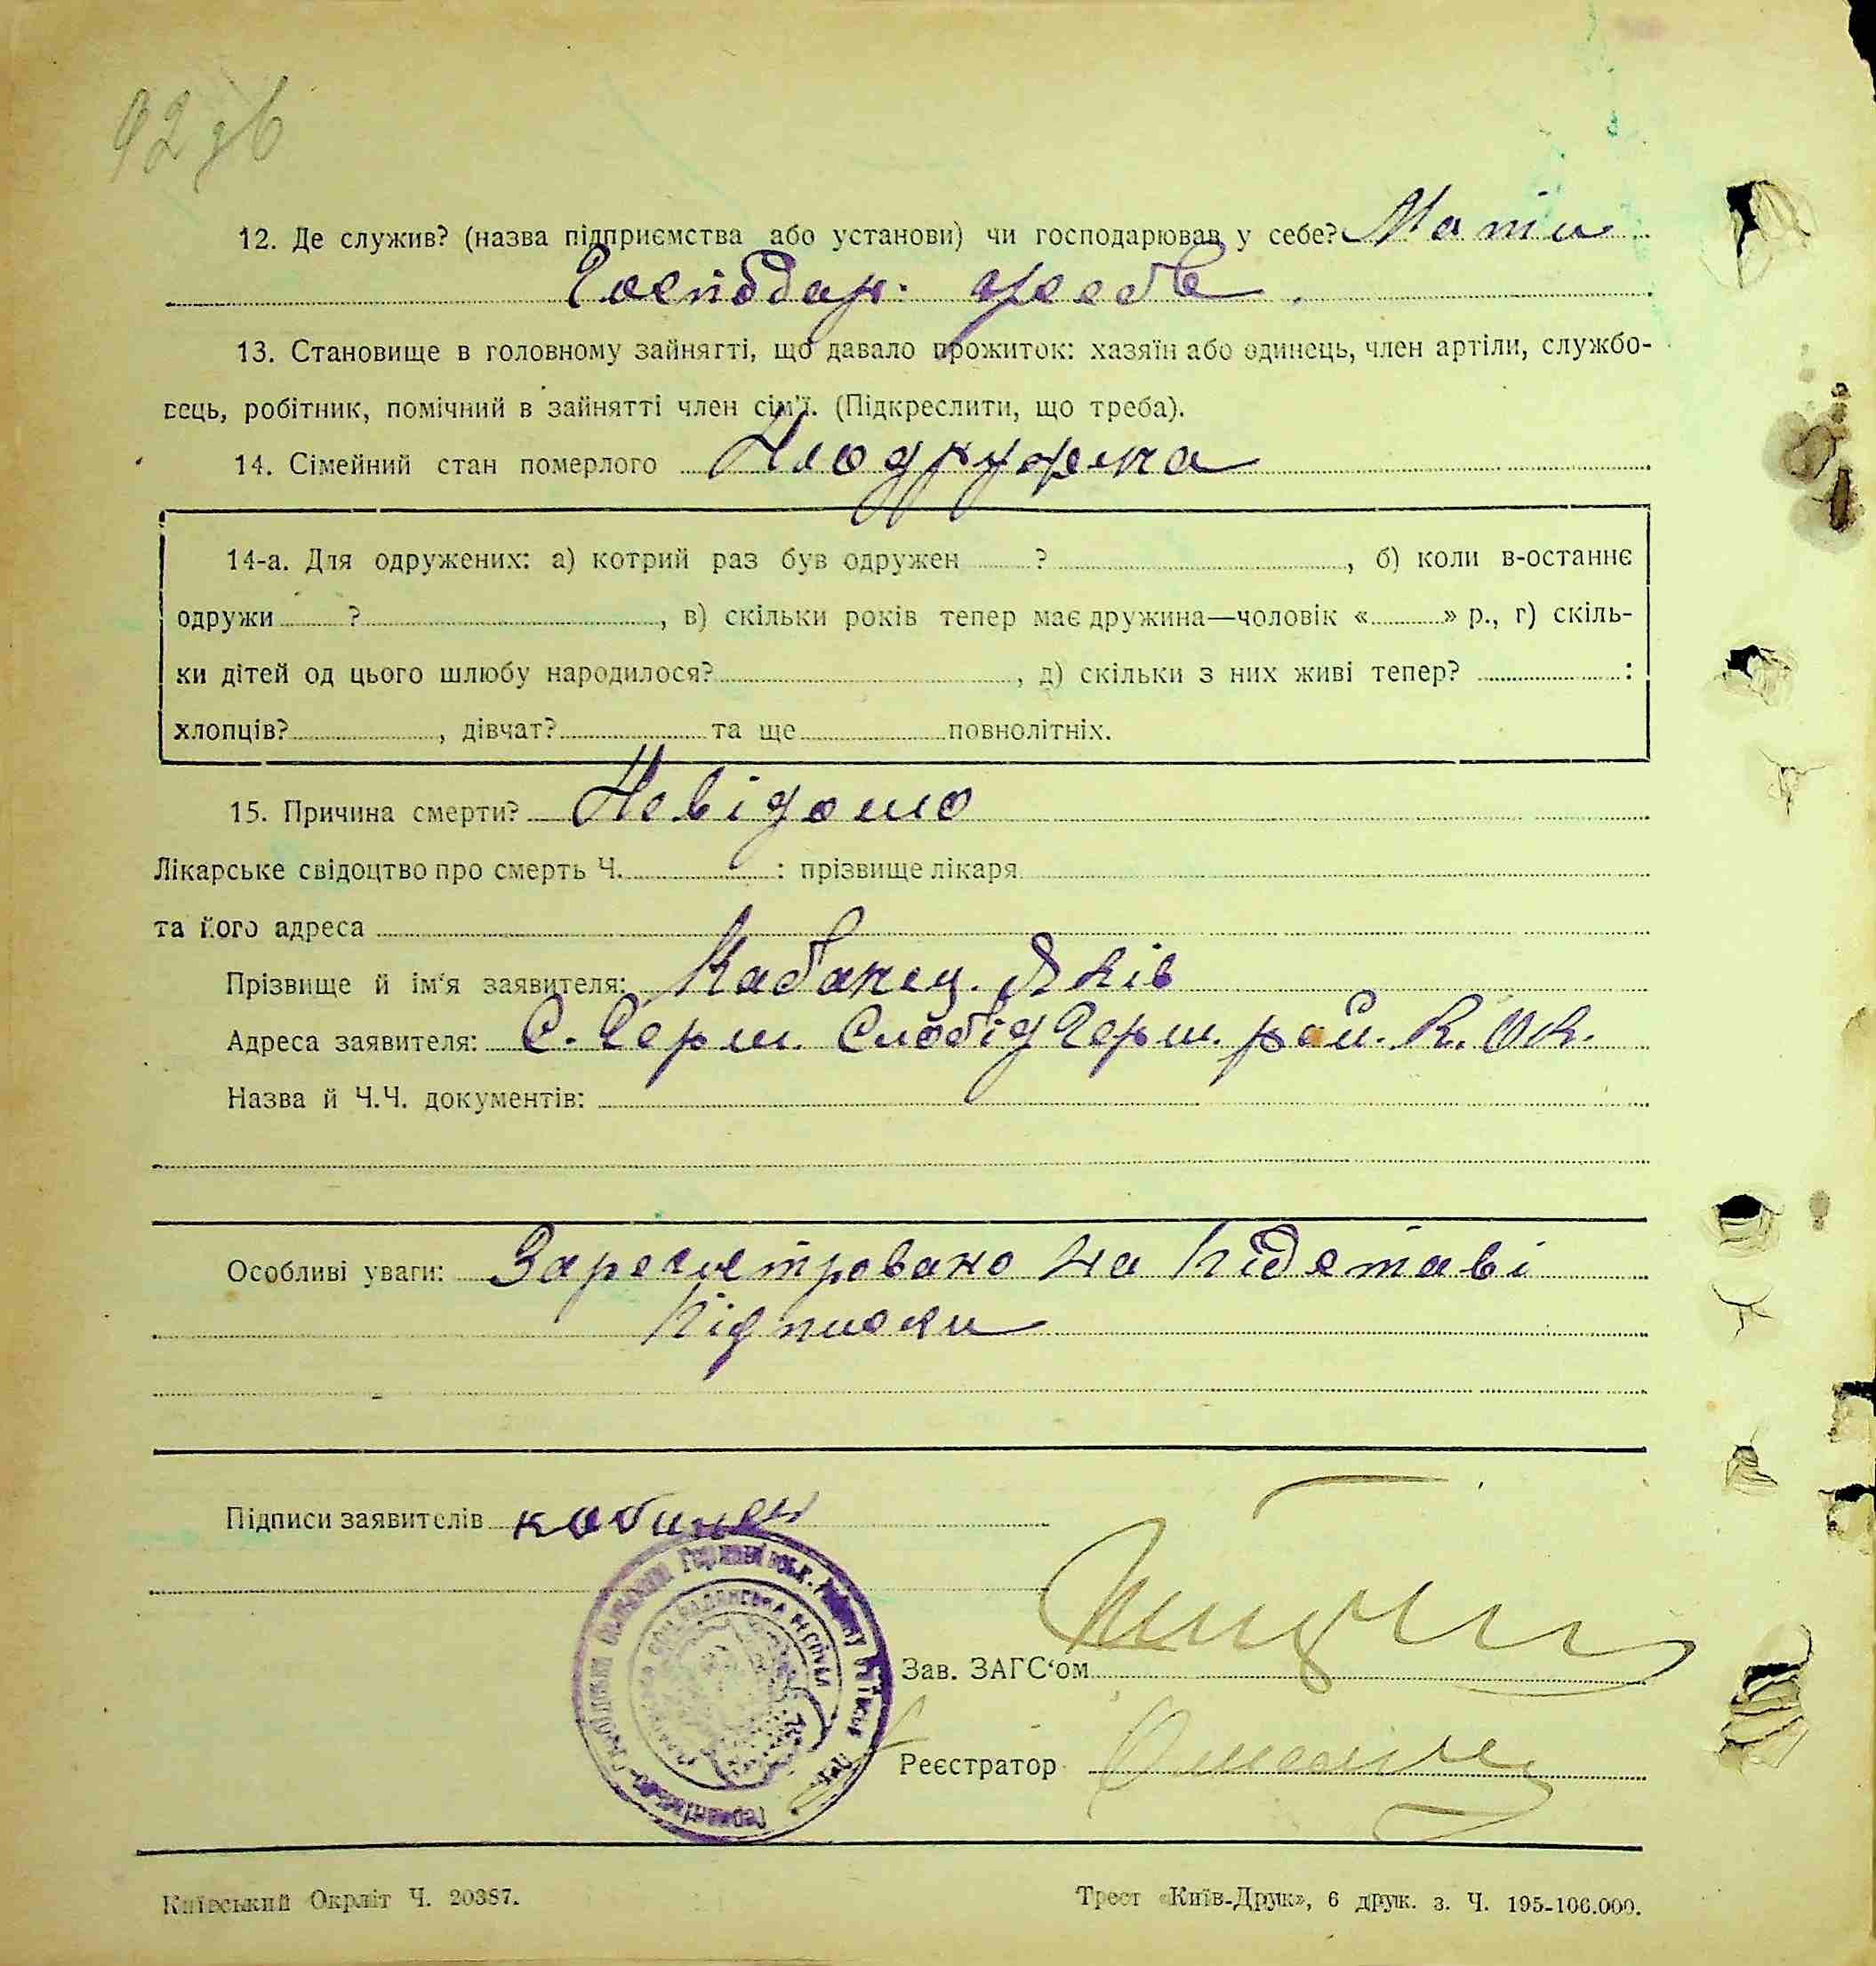 92 зв
12. Де служив? (назва підприємства або установи) чи господарював у себе? Мати
Господар. у себе
13. Становище в головному зайнятті, що давало прожиток: хазяїн або одинець, член артіли, службо-
вець, робітник, помічний в зайнятті член сім'ї. (Підкреслити, що треба).
14. Сімейний стан померлого Неодружена
14-а. Для одружених: а) котрий раз був одружен ? , б) коли в-останнє
одружи ? , в) скільки років тепер має дружина—чоловік « » р., г) скіль-
ки дітей од цього шлюбу народилося? , д) скільки з них живі тепер? :
хлопців? , дівчат? та ще повнолітніх.
15. Причина смерти? Невідомо
Лікарське свідоцтво про смерть Ч. : прізвище лікаря
та його адреса
Прізвище й ім'я заявителя: Кабанец. Яків
Адреса заявителя: С. Герм. Слобід Герм. рай. К. Ок.
Назва й Ч.Ч. документів:
Особливі уваги: Зарегистровано на підставі
підписки
Підписи заявителів кабинец
Зав. ЗАГС'ом
Реєстратор
Київський Окрліт Ч. 20387.
Трест «Київ-Друк», 6 друк. з. Ч. 195-106.000.